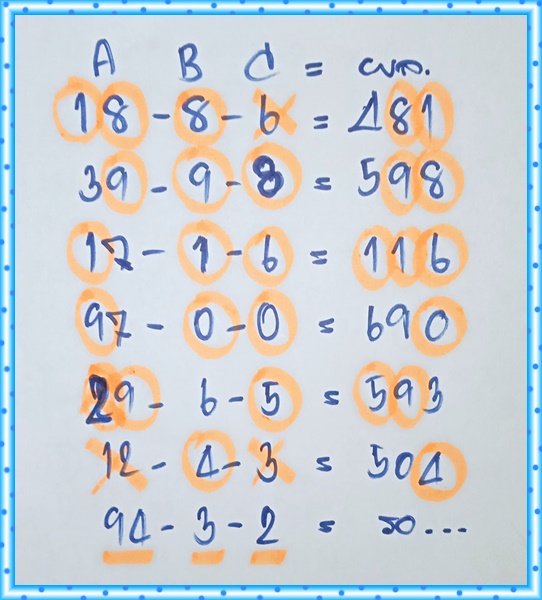 A B C =
18 - 8 - 6 = 481
39 - 9 - 8 = 598
17 - 1 - 6 = 116
97 - 0 - 0 = 690
29 - 6 - 5 = 593
12 - 4 - 3 = 504
94 - 3 - 2 = รอ...